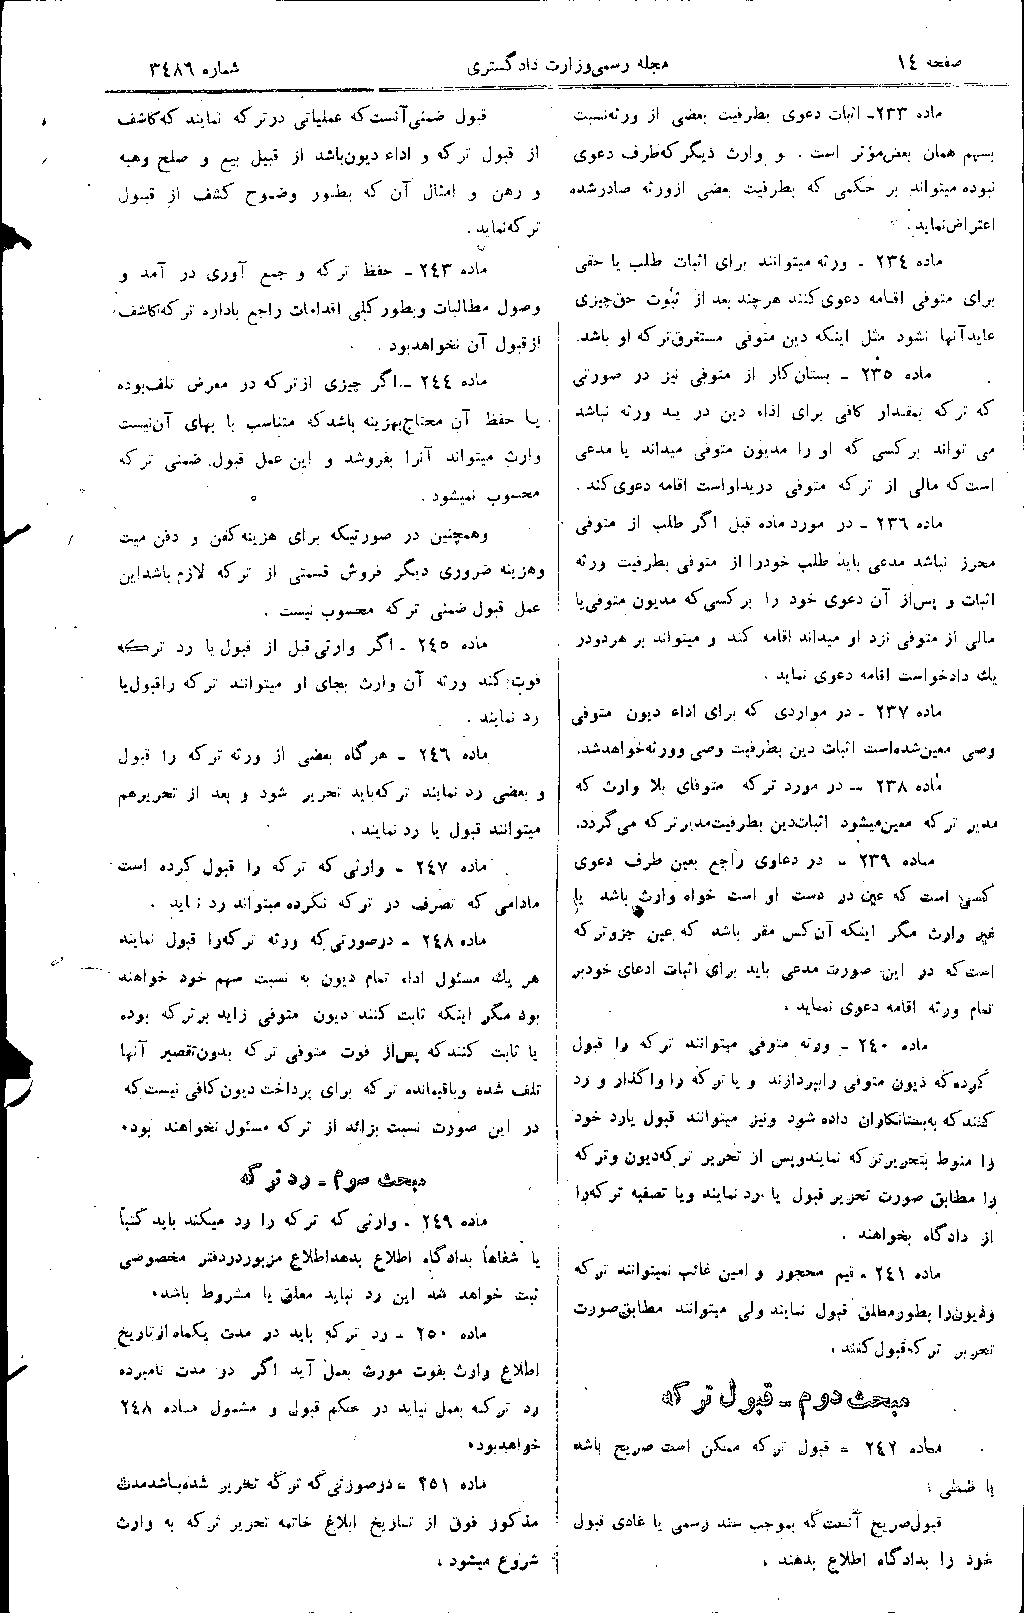 صفحه ١٤
مجله رسمی وزارت دادگستری
شماره ٣٤٨٦
ماده ٢٣٣ـ اثبات دعوی بطرفیت بعضی از ورثه نسبت
بسهم همان بعض مؤثر است . و وارث دیگر که طرف دعوی
نبوده میتواند بر حکمی که بطرفیت بعضی از ورثه صادر شده
اعتراض نماید .
ماده ٢٣٤ ـ ورثه میتوانند برای اثبات طلب یا حقی
برای متوفی اقامه دعوی کنند هر چند بعد از ثبوت حق چیزی
عاید آنها نشود مثل اینکه دین متوفی مستغرق ترکه او باشد.
ماده ٢٣٥ ـ بستان کار از متوفی نیز در صورتی
که ترکه بمقدار کافی برای اداء دین در ید ورثه نباشد
می تواند بر کسی که او را مدیون متوفی میداند یا مدعی
است که مالی از ترکه متوفی در ید او است اقامه دعوی کند .
ماده ٢٣٦ ـ در مورد ماده قبل اگر طلب از متوفی
محرز نباشد مدعی باید طلب خود را از متوفی بطرفیت ورثه
اثبات و پس از آن دعوی خود را بر کسی که مدیون متوفی یا
مالی از متوفی نزد او میداند اقامه کند و میتواند بر هر دو در
یك دادخواست اقامه دعوی نماید .
ماده ٢٣٧ ـ در مواردی که برای اداء دیون متوفی
وصی معین شده است اثبات دین بطرفیت وصی و ورثه خواهد شد.
ماده ٢٣٨ ـ در مورد ترکه متوفای بلا وارث که
مدیر ترکه معین میشود اثبات دین بطرفیت مدیر ترکه می گردد.
ماده ٢٣٩ ـ در دعاوی راجع بعین طرف دعوی
کسی است که عین در دست او است خواه وارث باشد یا
غیر وارث مگر اینکه آن کس مقر باشد که عین جزو ترکه
است که در این صورت مدعی باید برای اثبات ادعای خود بر
تمام ورثه اقامه دعوی نماید .
ماده ٢٤٠ ـ ورثه متوفی میتوانند ترکه را قبول
کرده که دیون متوفی را بپردازند و یا ترکه را واگذار و رد
کنند که به بستانکاران داده شود و نیز میتوانند قبول یا رد خود
را منوط بتحریر ترکه نمایند و پس از تحریر ترکه دیون و ترکه
را مطابق صورت تحریر قبول یا رد نمایند و یا تصفیه ترکه را
از دادگاه بخواهند .
ماده ٢٤١ ـ قیم محجور و امین غائب نمیتوانند ترکه
و دیون را بطور مطلق قبول نمایند ولی میتوانند مطابق صورت
تحریر ترکه قبول کنند .
مبحث دوم ـ قبول ترکه
ماده ٢٤٢ ـ قبول ترکه ممکن است صریح باشد
یا ضمنی :
قبول صریح آنست که بموجب سند رسمی یا عادی قبول
خود را بدادگاه اطلاع بدهند .
قبول ضمنی آنست که عملیاتی در ترکه نمایند که کاشف
از قبول ترکه و اداء دیون باشد از قبیل بیع و صلح و هبه
و رهن و امثال آن که بطور وضوح کشف از قبول
ترکه نماید .
ماده ٢٤٣ ـ حفظ ترکه و جمع آوری در آمد و
وصول مطالبات و بطور کلی اقدامات راجع باداره ترکه کاشف
از قبول آن نخواهد بود .
ماده ٢٤٤ ـ اگر چیزی از ترکه در معرض تلف بوده
یا حفظ آن محتاج بهزینه باشد که متناسب با بهای آن نیست
وارث میتواند آنرا بفروشد و این عمل قبول ضمنی ترکه
محسوب نمیشود .
و همچنین در صورتیکه برای هزینه کفن و دفن میت
و هزینه ضروری دیگر فروش قسمتی از ترکه لازم باشد این
عمل قبول ضمنی ترکه محسوب نیست .
ماده ٢٤٥ ـ اگر وارثی قبل از قبول یا رد ترکه
فوت کند ورثه آن وارث بجای او میتوانند ترکه را قبول یا
رد نمایند .
ماده ٢٤٦ ـ هر گاه بعضی از ورثه ترکه را قبول
و بعضی رد نمایند ترکه باید تحریر شود و بعد از تحریر هم
میتوانند قبول یا رد نمایند .
ماده ٢٤٧ ـ وارثی که ترکه را قبول کرده است
مادامی که تصرف در ترکه نکرده میتواند رد نماید .
ماده ٢٤٨ ـ در صورتی که ورثه ترکه را قبول نمایند
هر یك مسئول اداء تمام دیون به نسبت سهم خود خواهند
بود مگر اینکه ثابت کنند دیون متوفی زاید بر ترکه بوده
یا ثابت کنند که پس از فوت متوفی ترکه بدون تقصیر آنها
تلف شده و باقیمانده ترکه برای پرداخت دیون کافی نیست که
در این صورت نسبت بزائد از ترکه مسئول نخواهند بود.
مبحث سوم ـ رد ترکه
ماده ٢٤٩ ـ وارثی که ترکه را رد میکند باید کتباً
یا شفاهاً بدادگاه اطلاع بدهد اطلاع مزبور در دفتر مخصوصی
ثبت خواهد شد این رد نباید معلق یا مشروط باشد.
ماده ٢٥٠ ـ رد ترکه باید در مدت یکماه از تاریخ
اطلاع وارث بفوت مورث بعمل آید اگر در مدت نامبرده
رد ترکه بعمل نیاید در حکم قبول و مشمول ماده ٢٤٨
خواهد بود.
ماده ٢٥١ ـ در صورتی که ترکه تحریر شده باشد مدت
مذکور فوق از تاریخ ابلاغ خاتمه تحریر ترکه به وارث
شروع میشود .